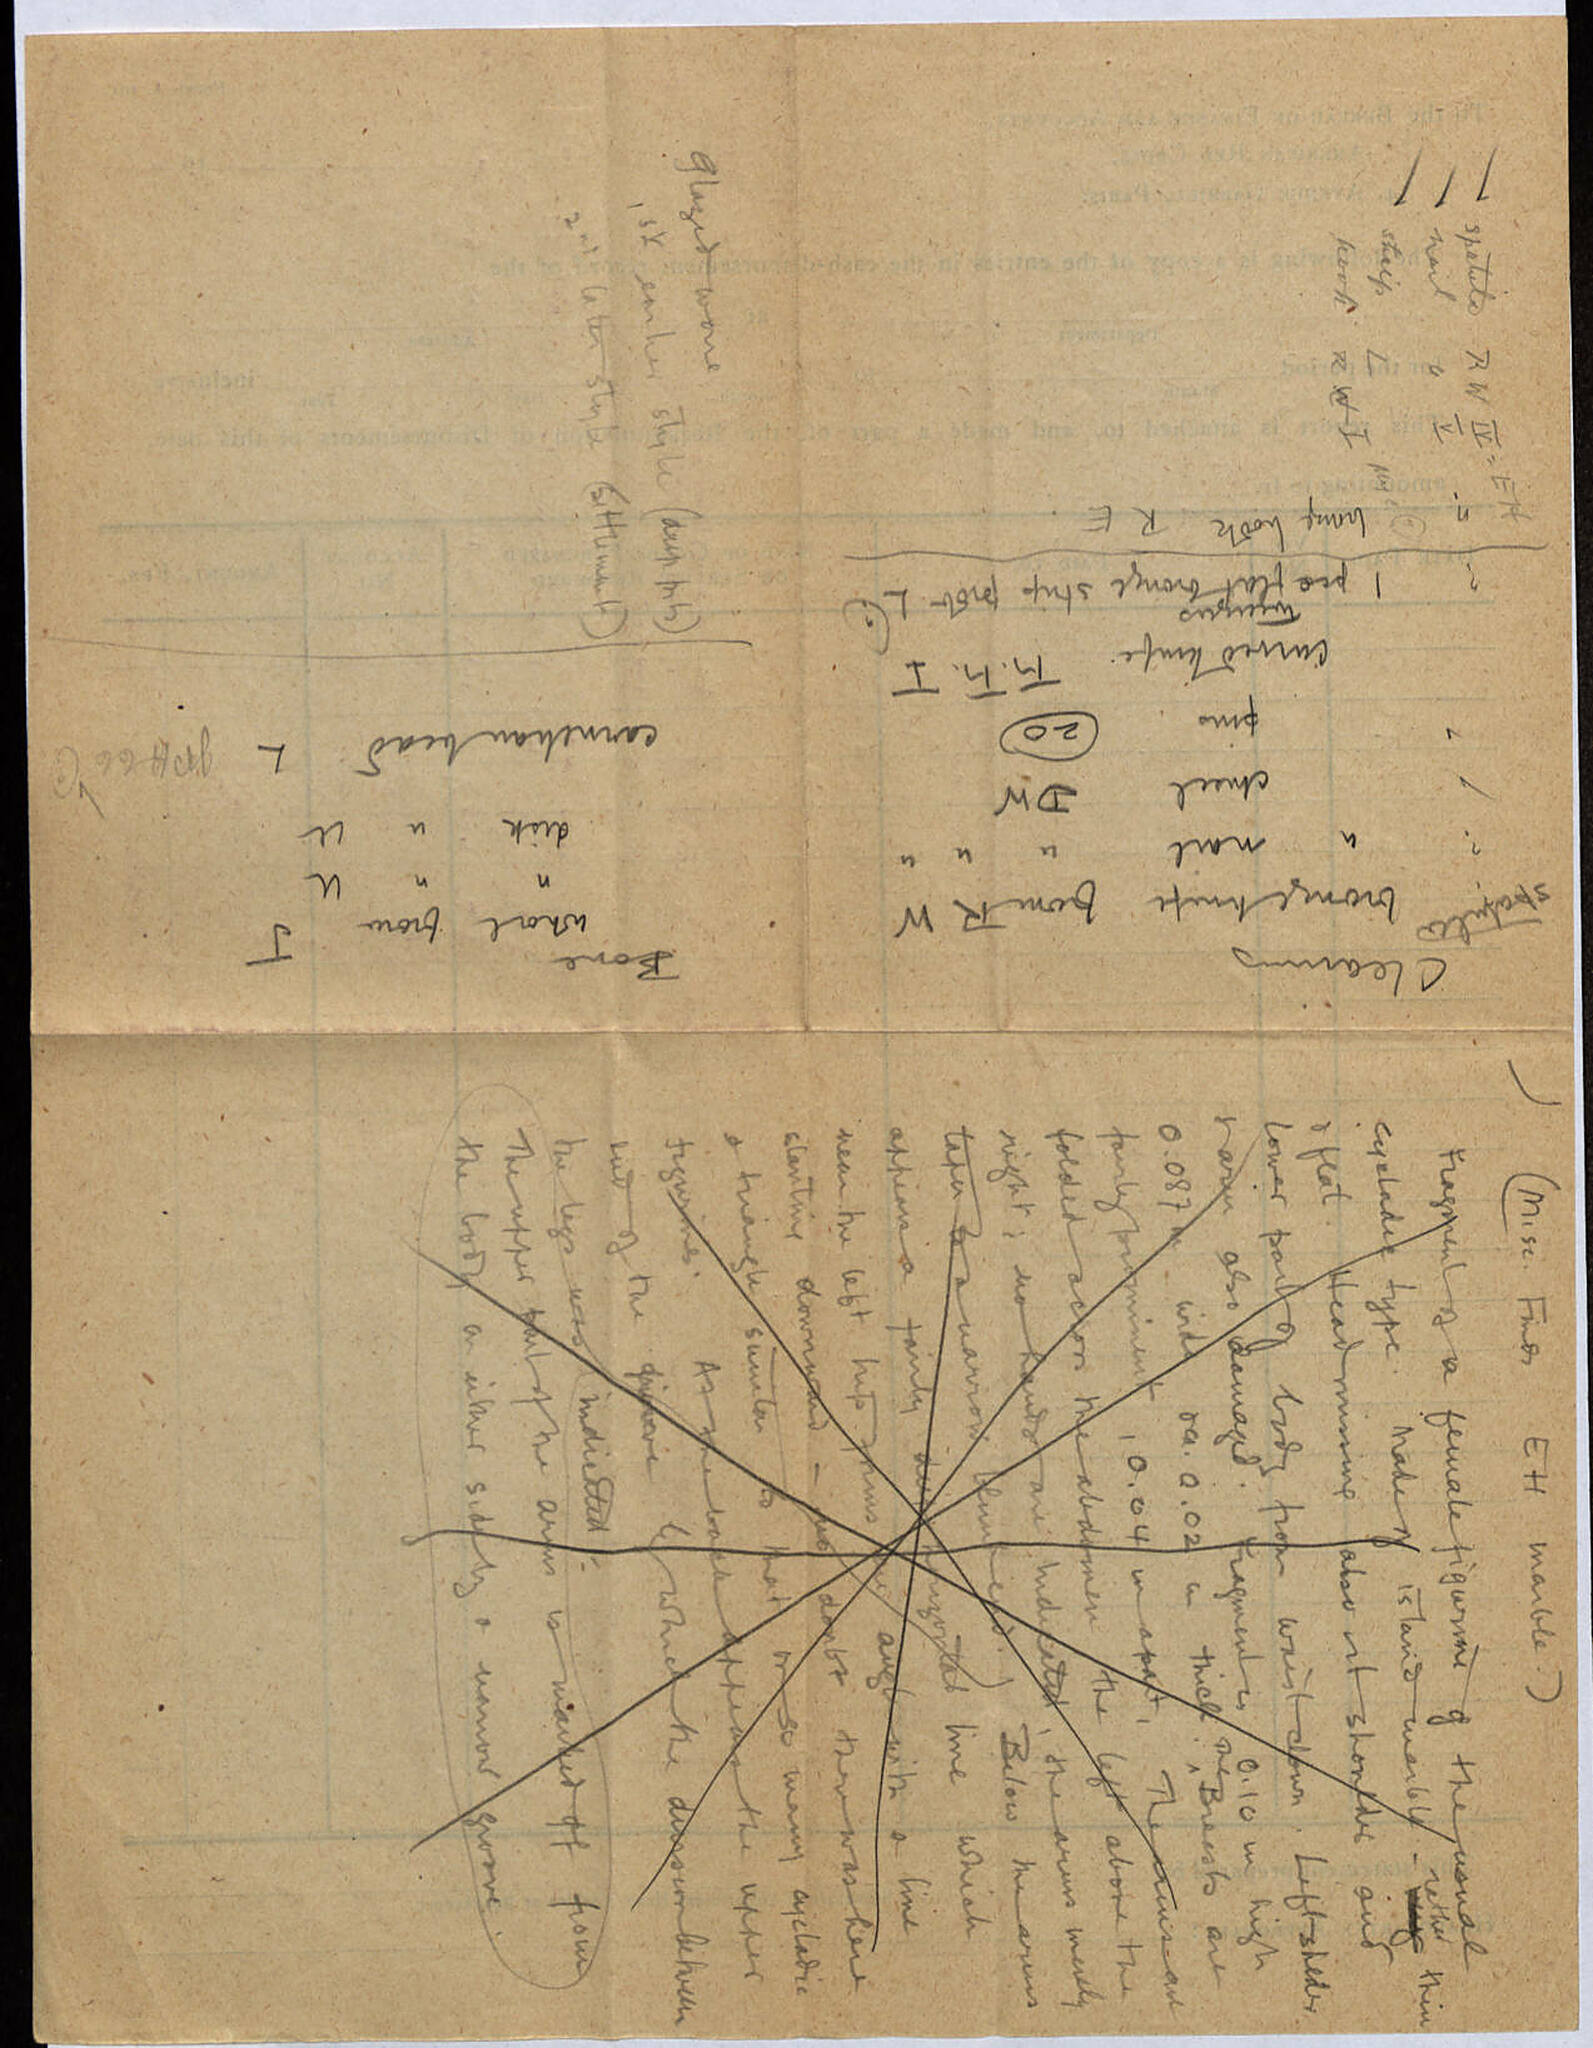 (Misc. Finds EH marble.)
Fragment of a female figurine of the usual
cycladic type. Made of island marble - rather thin
& flat. Head missing also rt shoulder and
lower part of body from waist down. Left shoulder
& arm also damaged. Fragment is 0.10 m high
0.087 m wide ca. 0.02 m thick. The Breasts are
fairly prominent, 0.04 m apart, The arms are
folded across the abdomen the left above the
right; no hands are indicated, the arms merely
taper to a narrow blunt end. Below the arms
appears a fairly deep horizontal line which
near the left hip forms an angle with a line
slanting downward - no doubt there was here
a triangle similar to that on so many cycladic
figurines. As the back appears the upper
end of the groove by which the division between
the legs was indicated.
The upper part of the arms is marked off from
the body on either side by a narrow groove.
Cleaning
spatula
bronze knife from R W
" nail " " "
chisel DW
pins (20)
curved knife T. T. I
Tweezers
1 pce flat bronze strip prob L
bronze hook R E
spatula RW IV = EH
nail " V
strip L I
Bone
whorl from J
" " U
disk " U
carnelian bead L
Glazed ware
1st earlier style (dark ptd)
2nd later style (settlement)